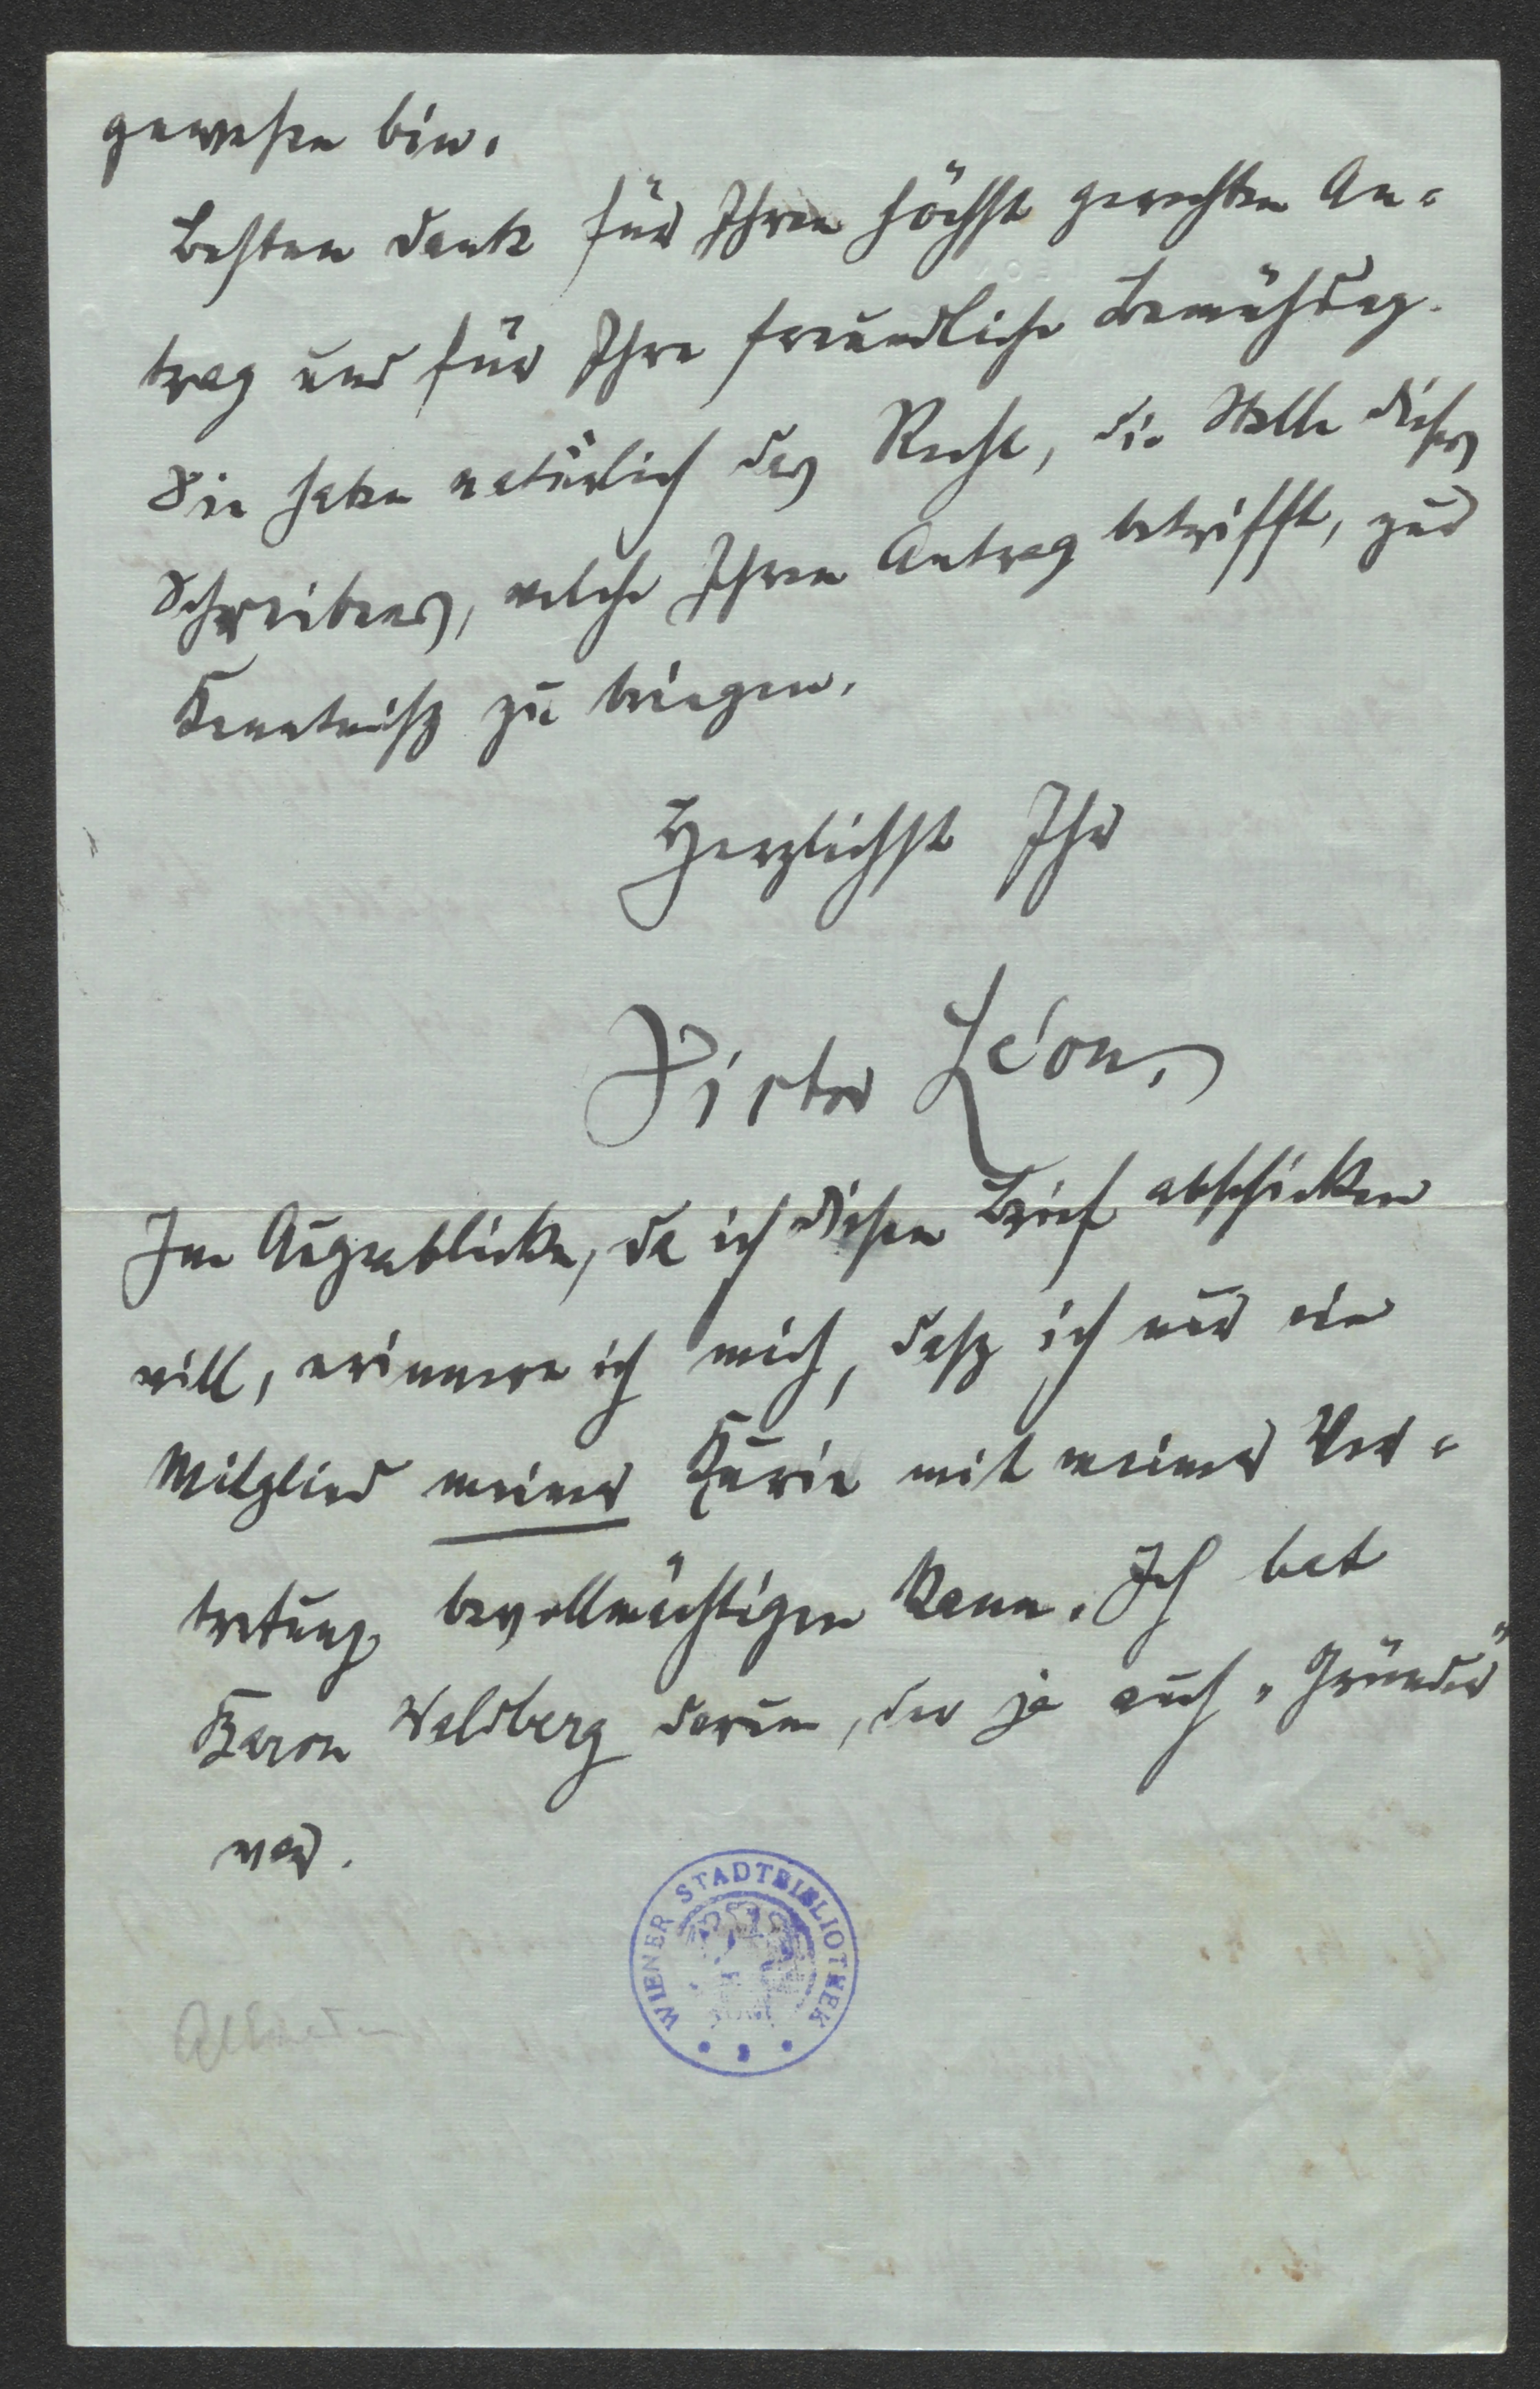 gewesen bin.
Besten Dank für Ihren höchst gerechten An-
trag und für Ihre freundliche Bemühung.
Sie haben natürlich das Recht, die Stelle dieses
Schreibens, welche Ihren Antrag betrifft, zur
Kenntnisz zu bringen.
Herzlichst Ihr
Victor Léon.
Im Augenblicke, da ich diesen Brief abschicken
will, erinnere ich mich, dasz ich nur ein
Mitglied meiner Kurie mit meiner Ver-
tretung bevollmächtigen kann. Ich bat
Baron Waldberg darum, der ja auch „Gründer“
war.
WIENER STADTBIBLIOTHEK